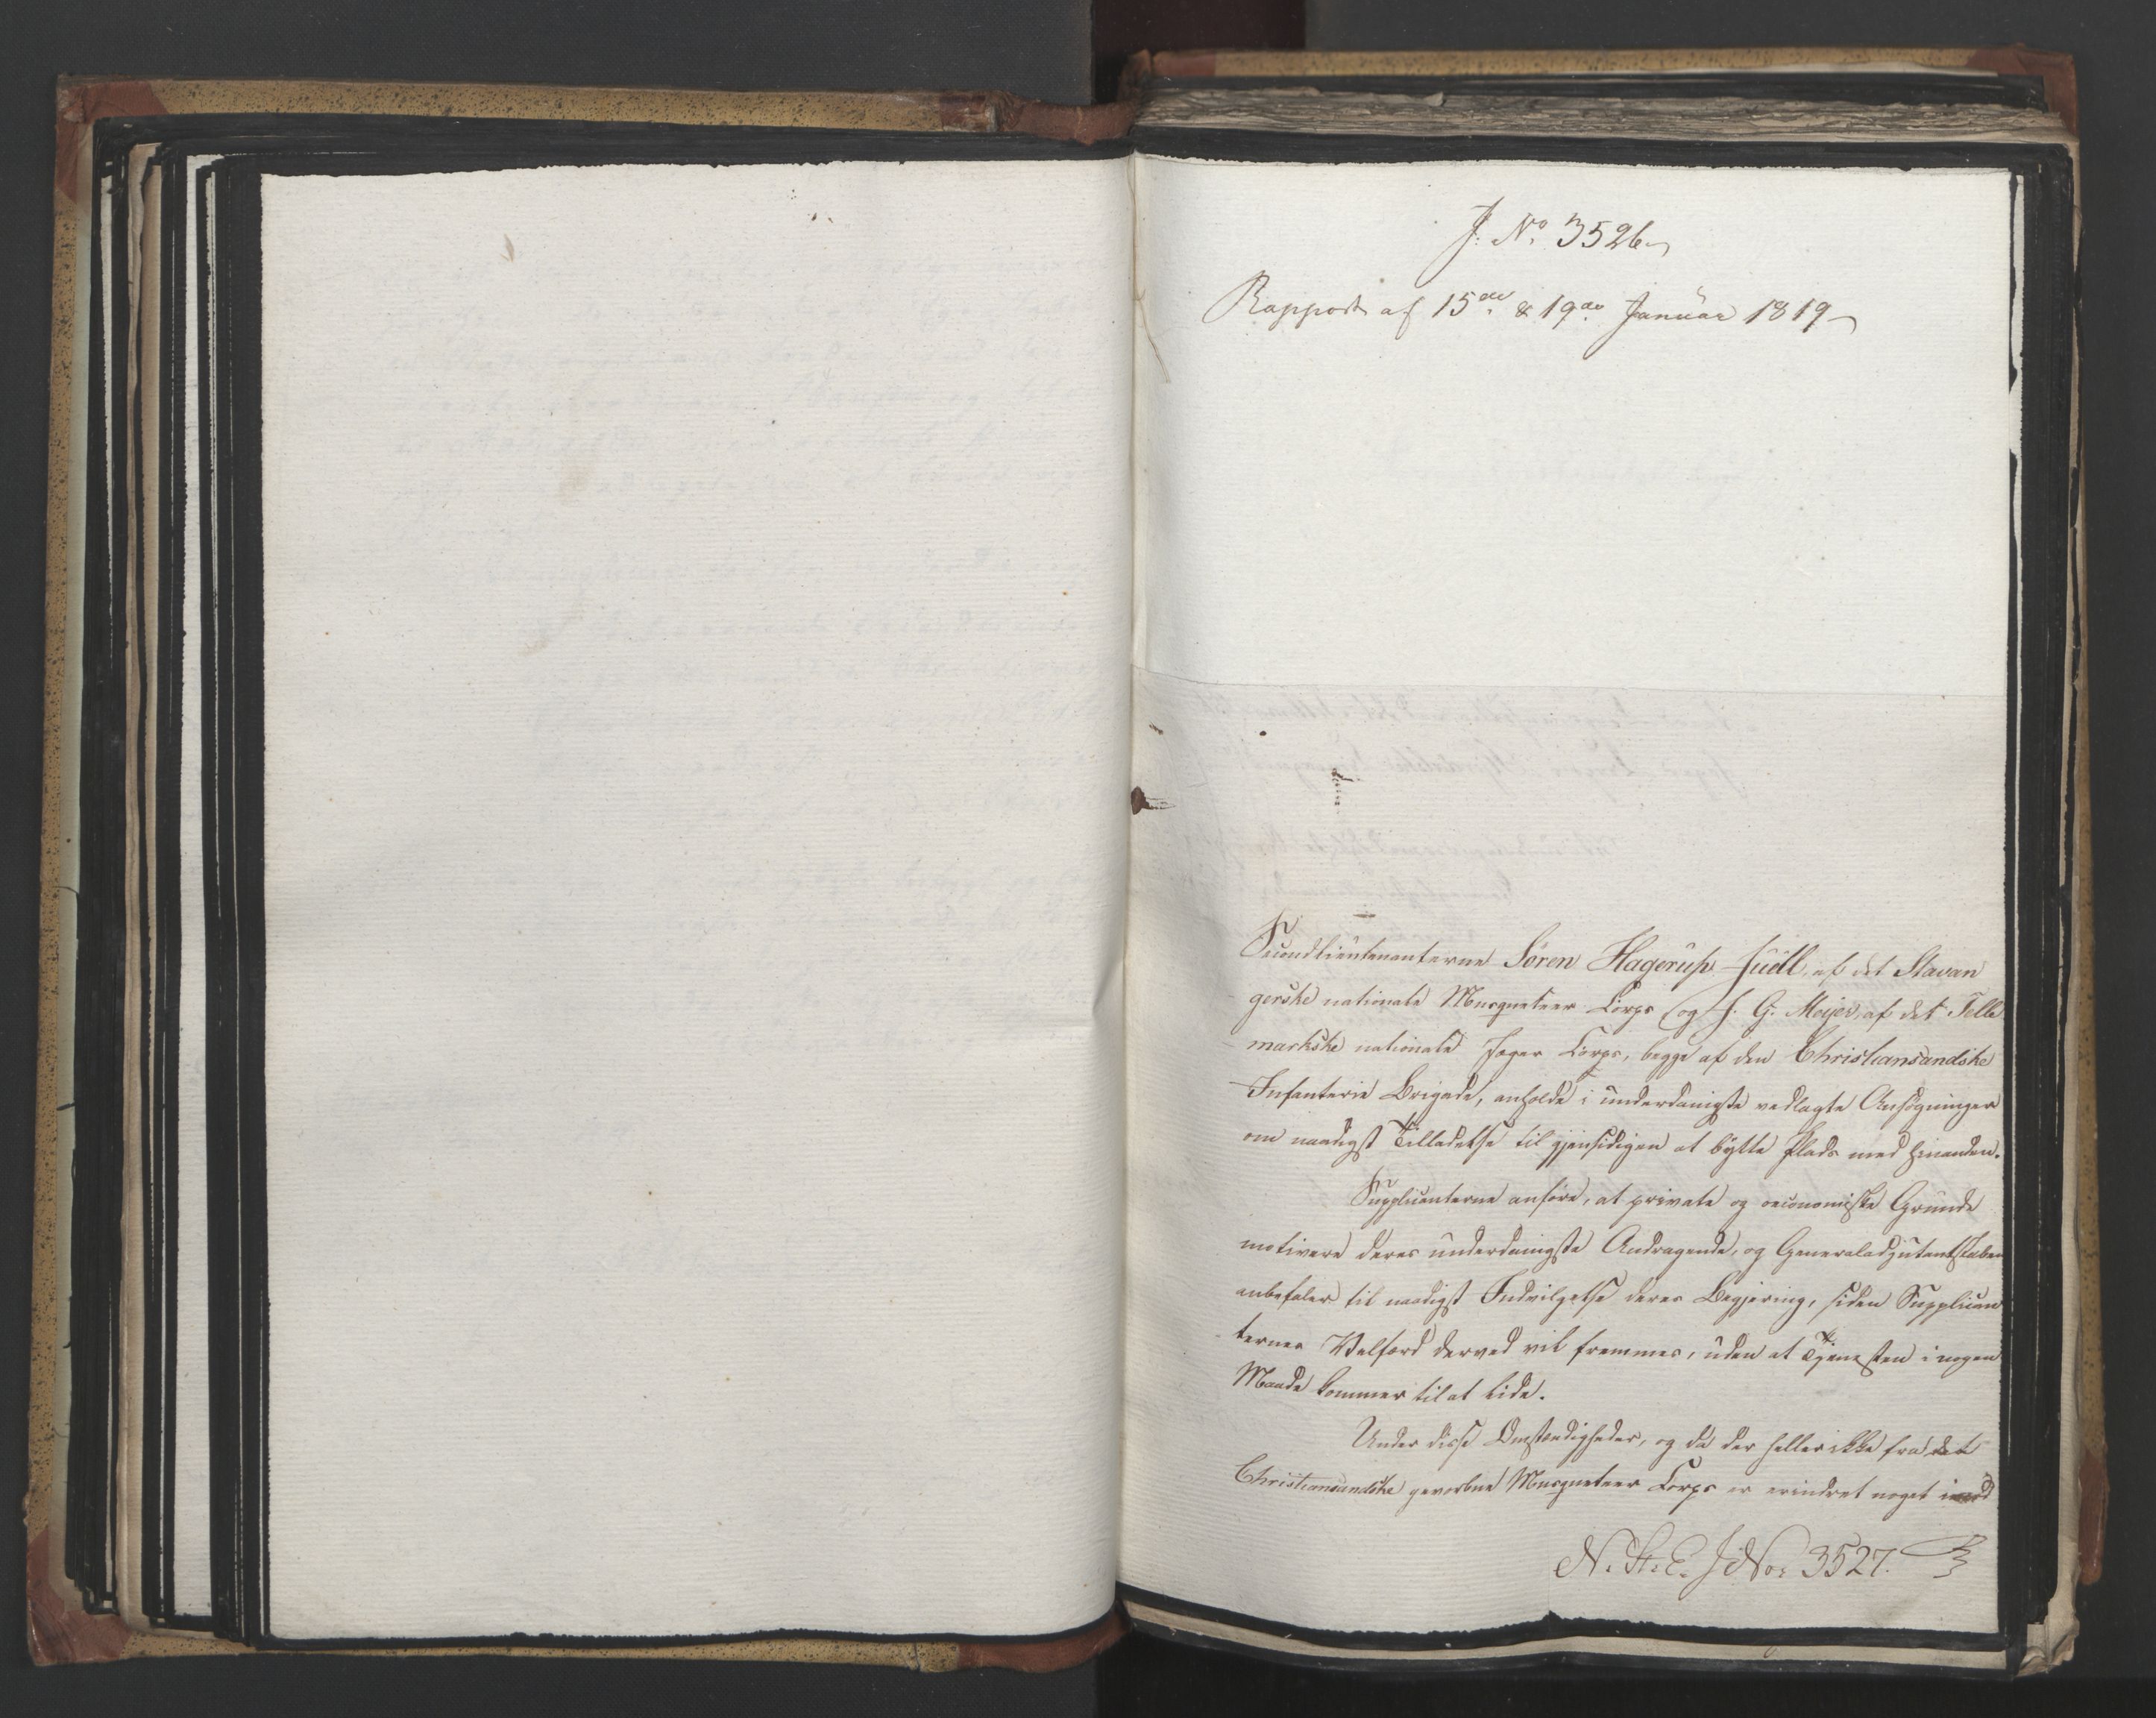 J: No. 3526
Rapport af 15de & 19de Januar 1819
Secondlieutenanterne Sören Hagerup Juell, af det Stavan
gerske nationale Musqueteer Corps og J. G. Meijer, af det Telle
markske nationale Jæger Corps, begge af den Christiansandske
Infanterie Brigade, anholde i underdanigste vedlagte Ansøgninger
om naadigst Tilladelse til gjensidigen at bytte Plads med hinanden.
Supplicanterne anføre, at private og oeconomiske Grunde
motivere deres underdanigste Andragende, og Generaladjutantstaben
anbefaler til naadigst Indvilgelse deres Begjering, siden Supplican
ternes Velfærd derved vil fremmes, uden at Tjenesten i nogen
Maade kommer til at lide.
Under disse Omstændigheder, og da der heller ikke fra det
Christiansandske gevorbne Musqueteer Corps er erindret noget imod
N. St. E. J No: 3527.